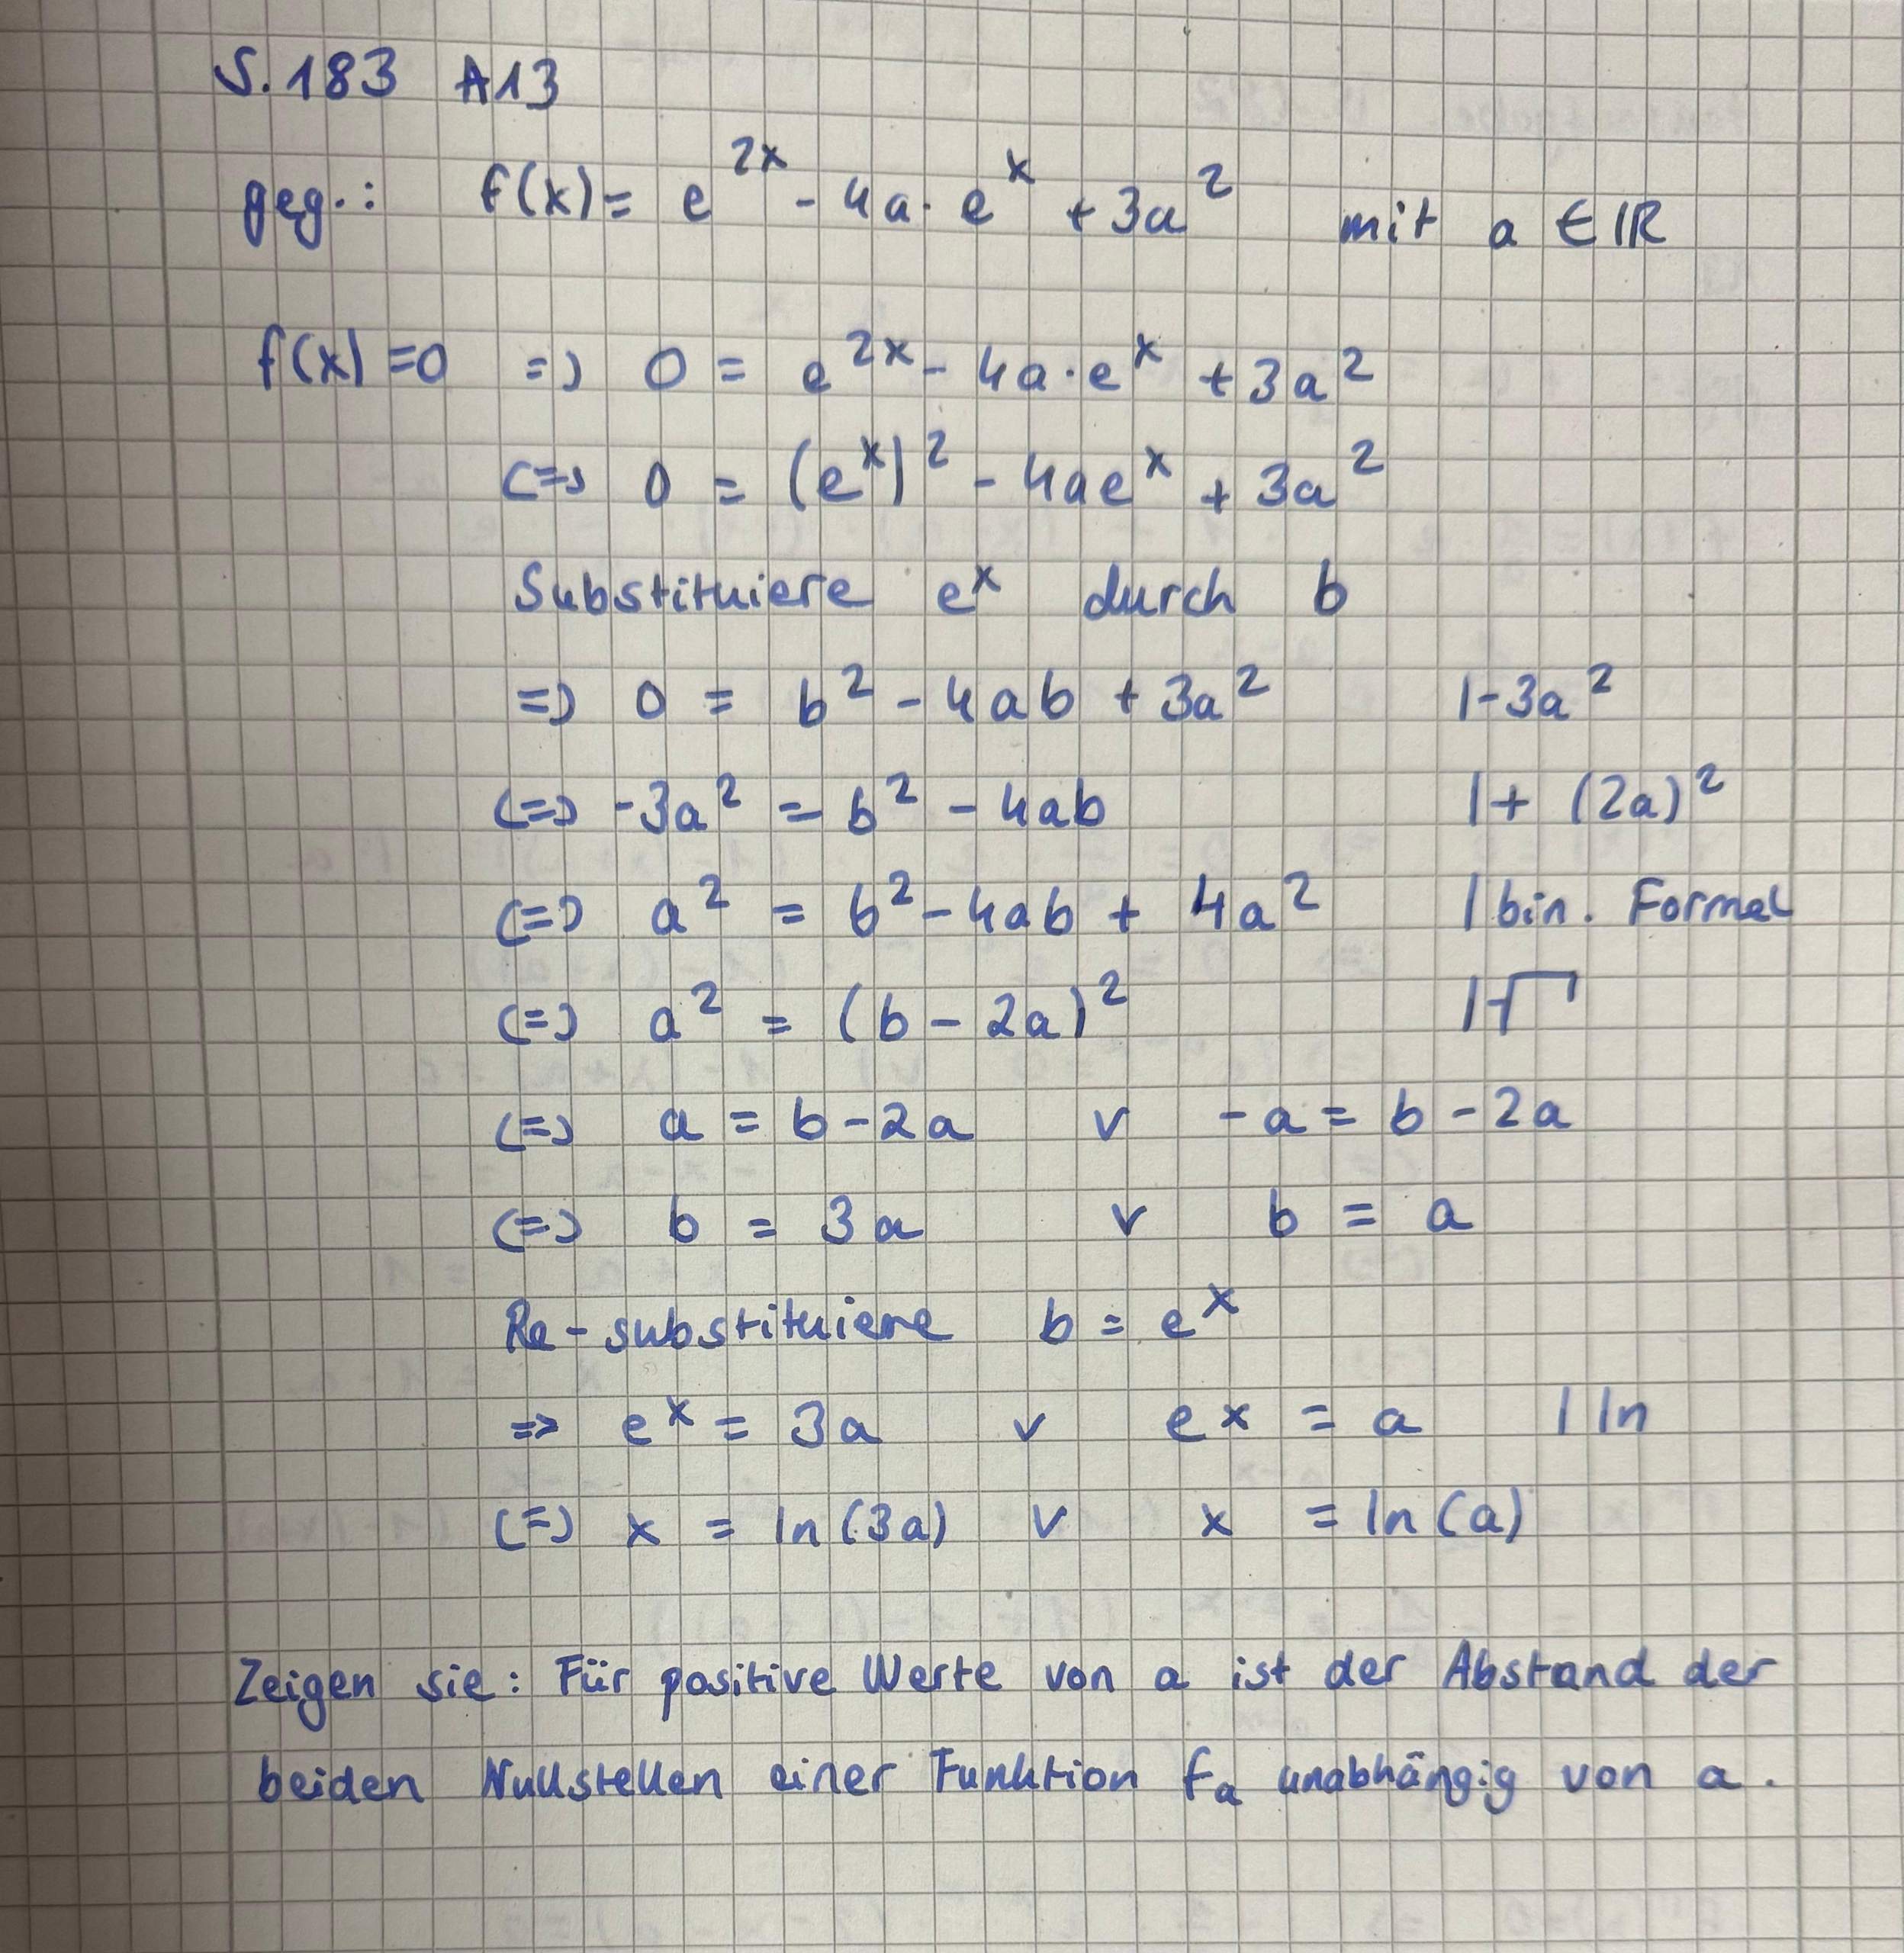 S. 183 A13
geg.: f(x) = e^2x - 4a · e^x + 3a² mit a ∈ ℝ
f(x) = 0 => 0 = e^2x - 4a · e^x + 3a²
<=> 0 = (e^x)² - 4ae^x + 3a²
Substituiere e^x durch b
=> 0 = b² - 4ab + 3a² | -3a²
<=> -3a² = b² - 4ab | + (2a)²
<=> a² = b² - 4ab + 4a² | bin. Formel
<=> a² = (b - 2a)² | √
<=> a = b - 2a v -a = b - 2a
<=> b = 3a v b = a
Re-substituiere b = e^x
=> e^x = 3a v e^x = a | ln
<=> x = ln(3a) v x = ln(a)
Zeigen sie: Für positive Werte von a ist der Abstand der
beiden Nullstellen einer Funktion fa unabhängig von a.